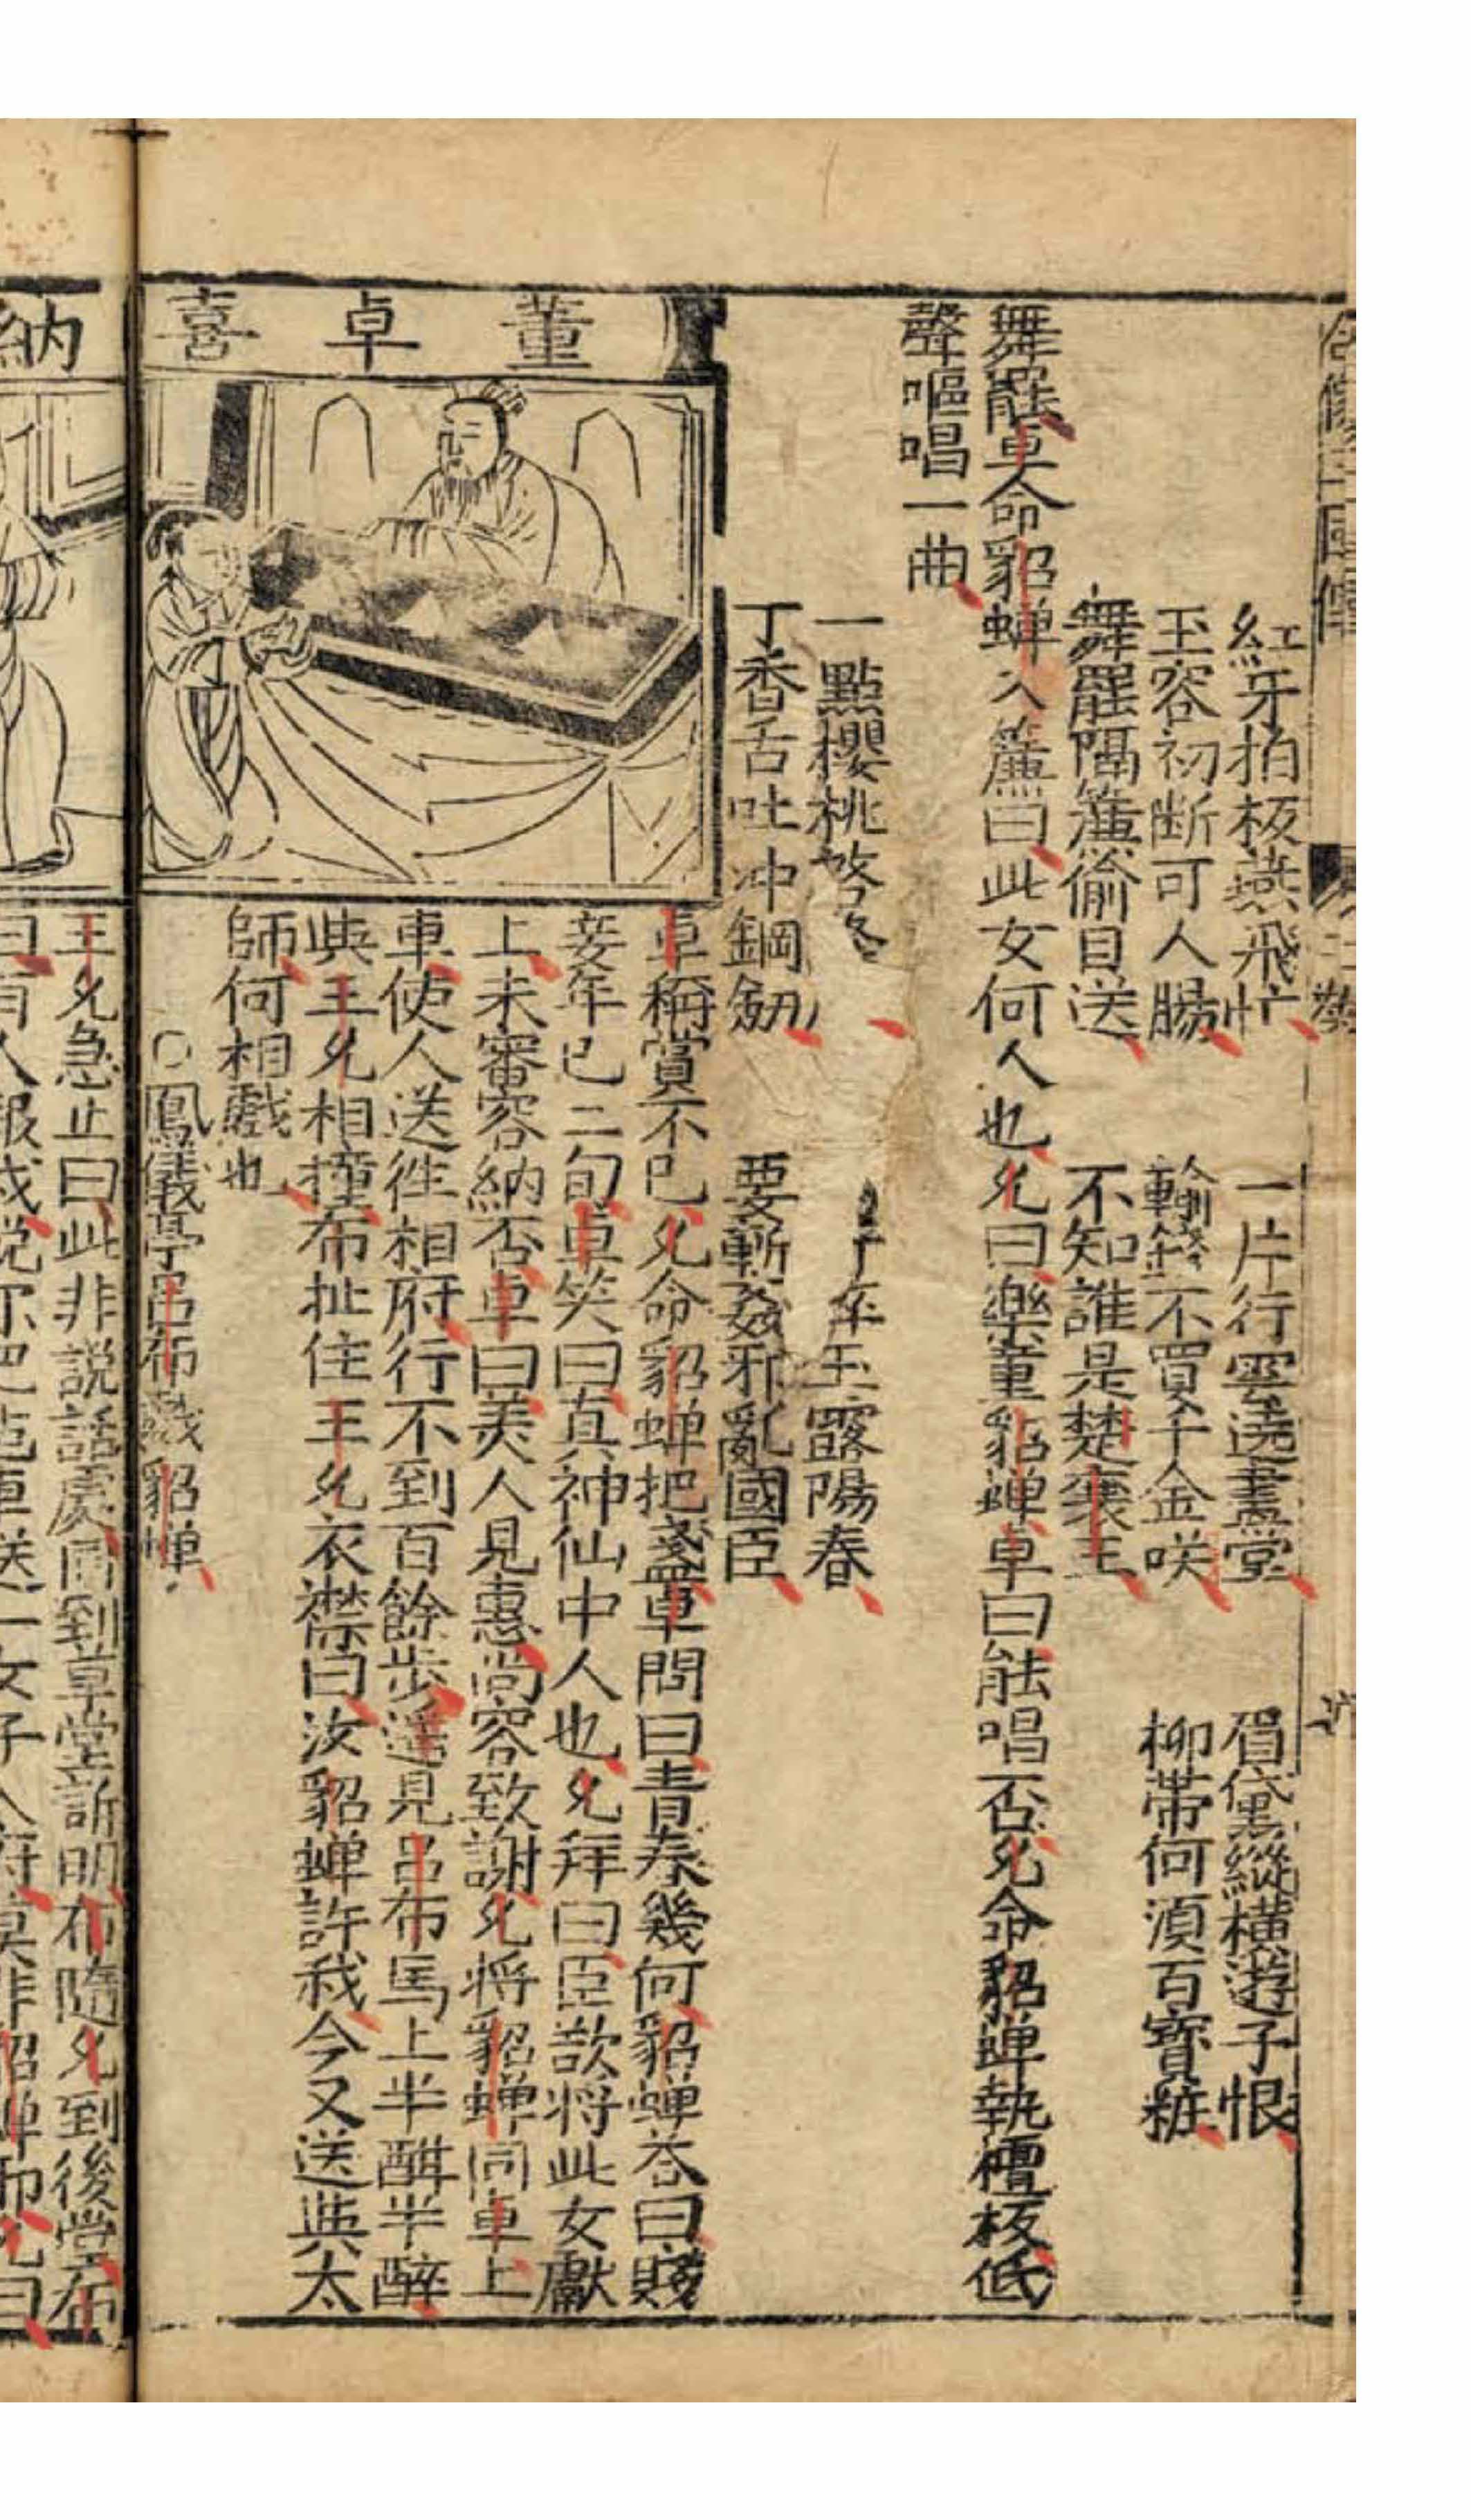 紅牙拍板燕飛忙 一片行雲遶畫堂 眉黛縱橫遊子恨
玉容初斷可人腸 輸錢不買千金咲 柳帶何湏百寶粧
舞罷隔簾偷目送 不知誰是楚襄王
舞罷卓命貂蟬入簾曰此女何人也允曰樂童貂蟬卓曰能唱否允命貂蟬執檀板低
聲嘔唱一曲
一點櫻桃啓絳 玉露陽春
丁香舌吐冲鋼劔 要斬姦邪亂國臣
董卓喜
卓稱賞不已允命貂蟬把盞卓問曰青春幾何貂蟬荅曰賤
妾年已二旬卓笑曰真神仙中人也允拜曰臣欲將此女獻
上未審容納否卓曰美人見惠尚容致謝允將貂蟬同車上
車使人送徃相府行不到百餘步遥見呂布馬上半酣半醉
與王允相撞布扯住王允衣襟曰汝貂蟬許我今又送與太
師何相戲也
○鳳儀亭呂布戲貂蟬
納
王允急止曰此非説話處同到草堂訴明布隨允到後堂布
曰有人報我説你把 車送一女子入府莫非貂蟬耶允曰